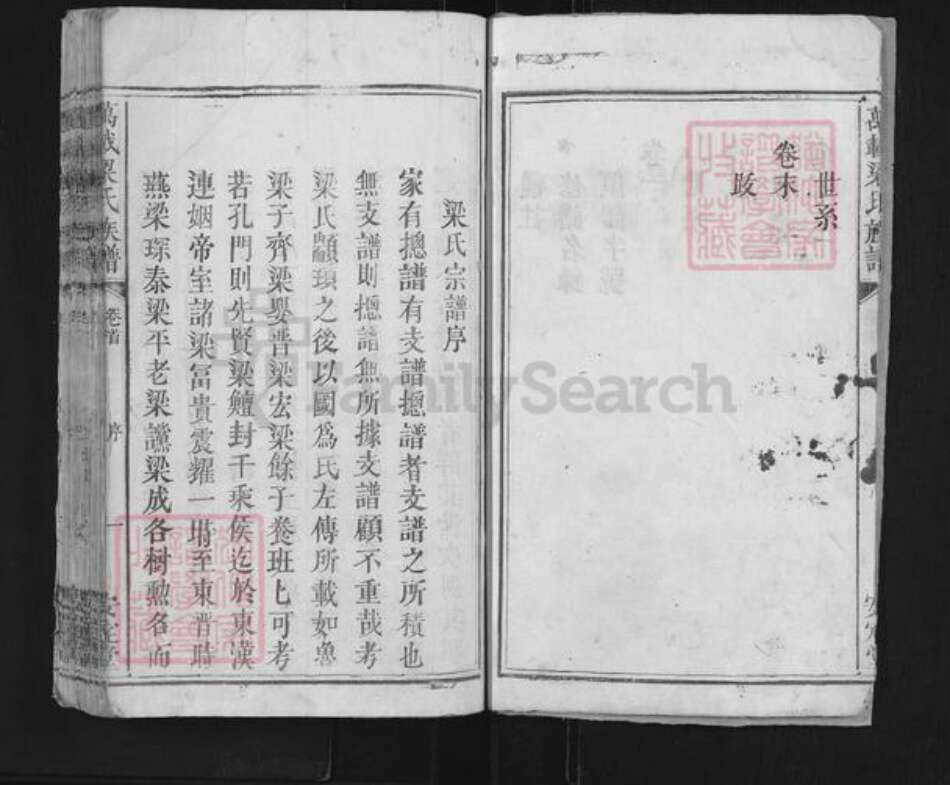 萬載梁氏族譜
世系
卷末
跋
安定堂
梁氏宗譜序
家有摠譜有支譜摠譜者支譜之所積也
無支譜則摠譜無所據支譜顧不重哉考
梁氏顓頊之後以國為氏左傳所載如魯
梁子齊梁嬰晋梁宏梁餘子養班乚可考
若孔門則先賢梁鱣封千乘侯迄於東漢
連姻帝室諸梁富貴震耀一時至東晋時
燕梁琛秦梁平老梁讜梁成各樹勲名而
萬載梁氏族譜
卷首
序
一
安定堂
FamilySearch